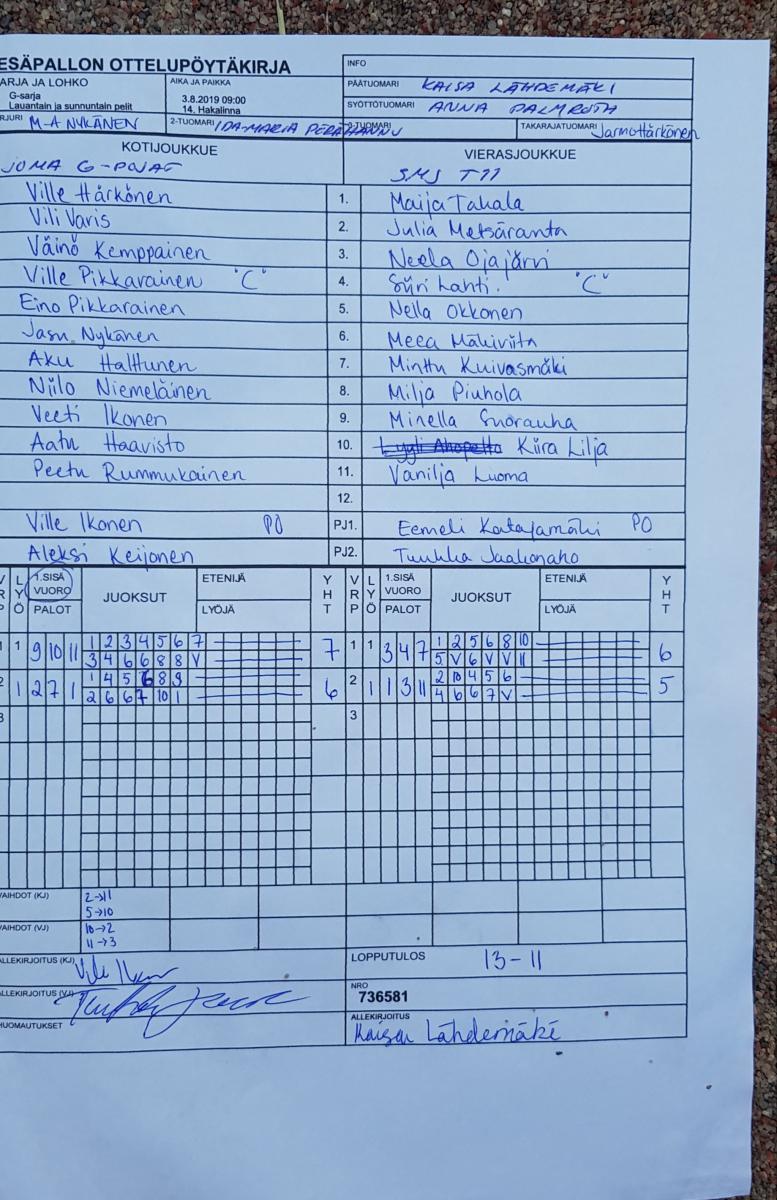 ESÄPALLON OTTELUPÖYTÄKIRJA
INFO
ARJA JA LOHKO
G-sarja
Lauantain ja sunnuntain pelit
AIKA JA PAIKKA
3.8.2019 09:00
14, Hakalinna
PÄÄTUOMARI KAISA LÄHDEMÄKI
SYÖTTÖTUOMARI ANNA PALMROTH
RJURI M-A NYKÄNEN
2-TUOMARI IDA-MARIA
3-TUOMARI
TAKARAJATUOMARI Jarmo Härkönen
KOTIJOUKKUE
JOMA G-POJAT
VIERASJOUKKUE
SMJ T11
Ville Härkönen 1. Maija Takala
Vili Varis 2. Julia Metsäranta
Väinö Kemppainen 3. Neela Ojajärvi
Ville Pikkarainen "C" 4. Siiri Lahti. "C"
Eino Pikkarainen 5. Nella Okkonen
Jasu Nykänen 6. Meea Mäkiviita
Aku Halttunen 7. Minttu Kuivasmäki
Niilo Niemeläinen 8. Milja Piuhola
Veeti Ikonen 9. Minella Suorauha
Aatu Haavisto 10. Kiira Lilja
Peetu Rummukainen 11. Vanilja Luoma
12.
Ville Ikonen PO PJ1. Eemeli Katajamäki PO
Aleksi Keijonen PJ2. Tuukka Jaakonaho
VRP LYÖ 1.SISÄ VUORO PALOT JUOKSUT ETENIJÄ LYÖJÄ YHT VRP LYÖ 1.SISÄ VUORO PALOT JUOKSUT ETENIJÄ LYÖJÄ YHT
1 1 9 10 11 1 2 3 4 5 6 7 7 1 1 3 4 7 1 2 5 6 8 10 6
3 4 6 6 8 8 V 5 V 6 V V 11
2 1 2 7 1 1 4 5 6 8 9 6 2 1 1 3 11 2 10 4 5 6 5
2 6 6 7 10 1 4 6 6 7 V
3 3
VAIHDOT (KJ) 2→11
5→10
VAIHDOT (VJ) 10→2
11→3
ALLEKIRJOITUS (KJ)
LOPPUTULOS 13-11
ALLEKIRJOITUS (VJ)
NRO
736581
HUOMAUTUKSET
ALLEKIRJOITUS
Kaisa Lähdemäki